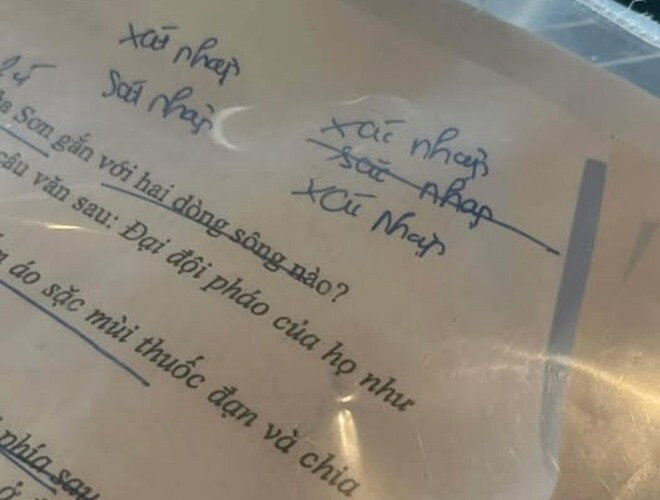 xát nhập
Sát nhập
xác nhập
sác nhập
xác nhập
Sơn gắn với hai dòng sông nào?
câu văn sau: Đại đội pháo của họ như
áo sặc mùi thuốc đạn và chia
phía sau